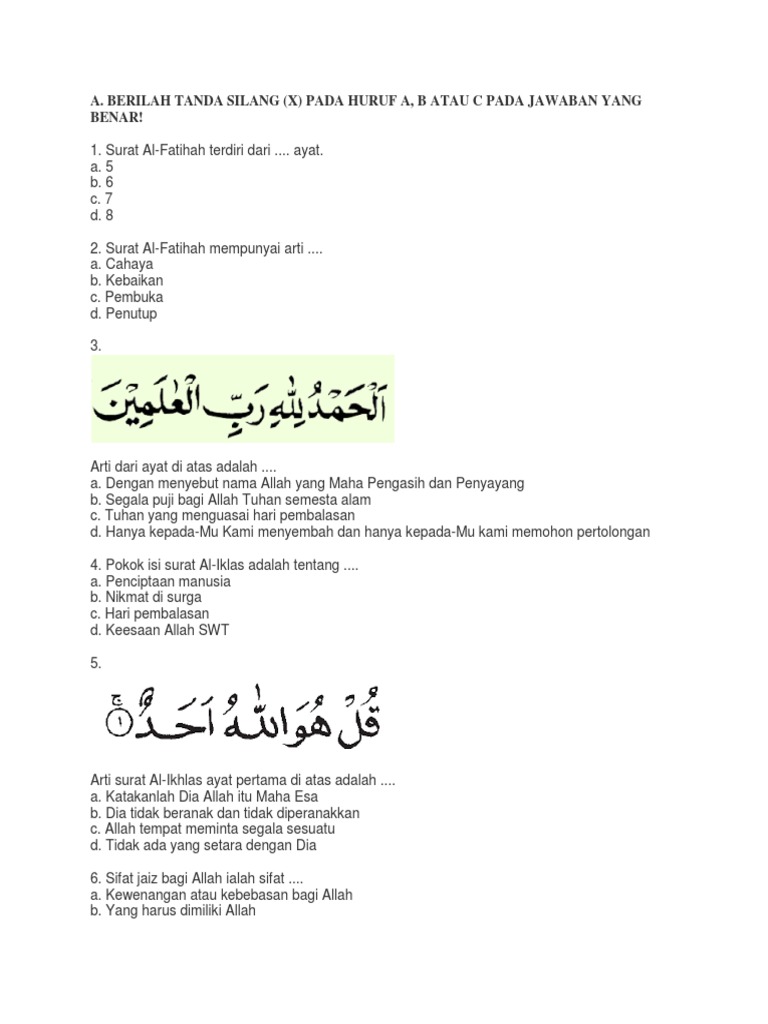 A. BERILAH TANDA SILANG (X) PADA HURUF A, B ATAU C PADA JAWABAN YANG
BENAR!
1. Surat Al-Fatihah terdiri dari .... ayat.
a. 5
b. 6
c. 7
d. 8
2. Surat Al-Fatihah mempunyai arti ....
a. Cahaya
b. Kebaikan
c. Pembuka
d. Penutup
3.
اَلْحَمْدُ لِلّٰهِ رَبِّ الْعٰلَمِيْنَ
Arti dari ayat di atas adalah ....
a. Dengan menyebut nama Allah yang Maha Pengasih dan Penyayang
b. Segala puji bagi Allah Tuhan semesta alam
c. Tuhan yang menguasai hari pembalasan
d. Hanya kepada-Mu Kami menyembah dan hanya kepada-Mu kami memohon pertolongan
4. Pokok isi surat Al-Iklas adalah tentang ....
a. Penciptaan manusia
b. Nikmat di surga
c. Hari pembalasan
d. Keesaan Allah SWT
5.
قُلْ هُوَ اللّٰهُ اَحَدٌۚ ١
Arti surat Al-Ikhlas ayat pertama di atas adalah ....
a. Katakanlah Dia Allah itu Maha Esa
b. Dia tidak beranak dan tidak diperanakkan
c. Allah tempat meminta segala sesuatu
d. Tidak ada yang setara dengan Dia
6. Sifat jaiz bagi Allah ialah sifat ....
a. Kewenangan atau kebebasan bagi Allah
b. Yang harus dimiliki Allah